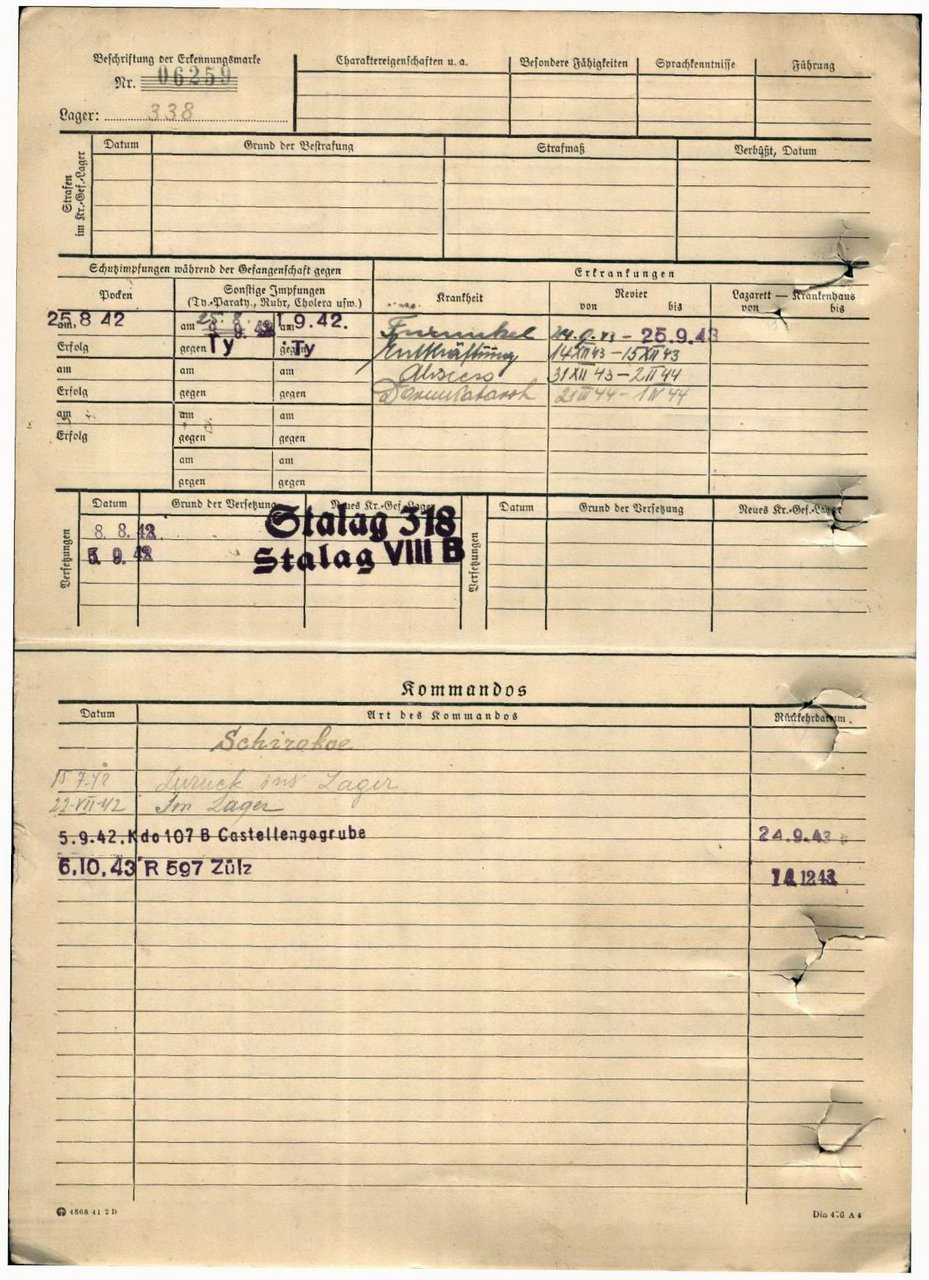 Beschriftung der Erkennungsmarke
Nr. 06259
Lager: 338
Charaktereigenschaften u. a.
Besondere Fähigkeiten
Sprachkenntnisse
Führung
Strafen im Kr.-Gef.-Lager
Datum
Grund der Bestrafung
Strafmaß
Verbüßt, Datum
Schutzimpfungen während der Gefangenschaft gegen
Erkrankungen
Pocken
Sonstige Impfungen
(Ty.-Paraty., Ruhr, Cholera usw.)
Krankheit
Revier
von bis
Lazarett — Krankenhaus
von bis
25.8 42
am
am 25. 8. 9. 42
am 1.9.42.
Furunkel 24.9.43 - 25.9.43
Erfolg
gegen Ty
gegen Ty
Entkräftung 14 XII 43 - 15 XII 43
am am am
Abscess 31 XII 43 - 2 II 44
Erfolg gegen gegen
Darmkatarrh 21 III 44 - 1 IV 44
am am am
Erfolg gegen gegen
am am
gegen gegen
Versetzungen
Datum
Grund der Versetzung
Neues Kr.-Gef.-Lager
8. 8. 42 Stalag 318
5. 9. 42 Stalag VIII B
Versetzungen
Datum
Grund der Versetzung
Neues Kr.-Gef.-Lager
Kommandos
Datum
Art des Kommandos
Rückkehrdatum
Schirokoe
15 7.42 Zurück ins Lager
22-VII-42 Im Lager
5.9.42. Kdo 107 B Castellengogrube 24.9.43
6.10.43 R 597 Zülz 12 43
4868 41 2 D
Din 476 A 4